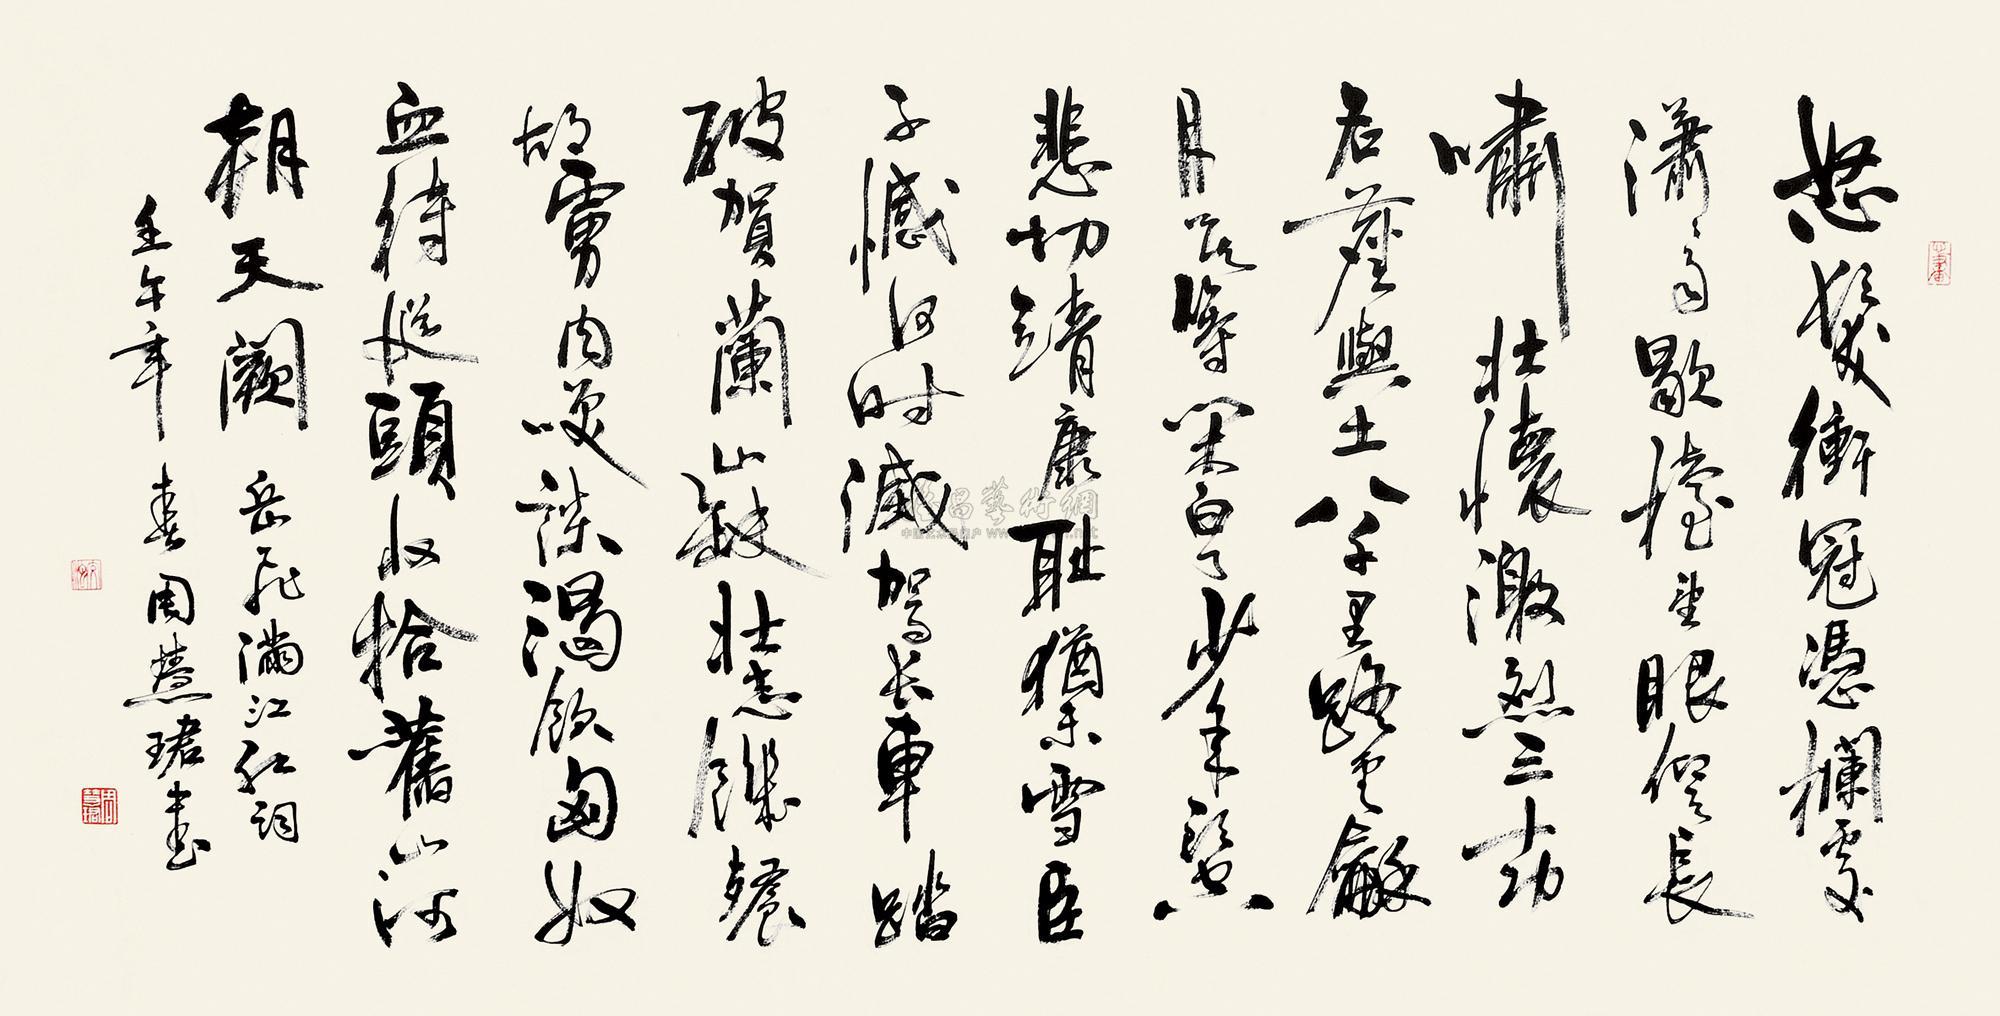 怒髮衝冠憑欄處
瀟瀟雨歇擡望眼仰天長
嘯壯懷激烈三十功
名塵與土八千里路雲龢
月莫等閑白了少年頭空
悲切靖康耻猶未雪臣
子憾何時滅駕長車踏
破賀蘭山缺壯志饑餐
胡虜肉笑談渴飲匈奴
血待從頭收拾舊山河
朝天闕 岳飛滿江紅詞
壬午年春周慧珺書